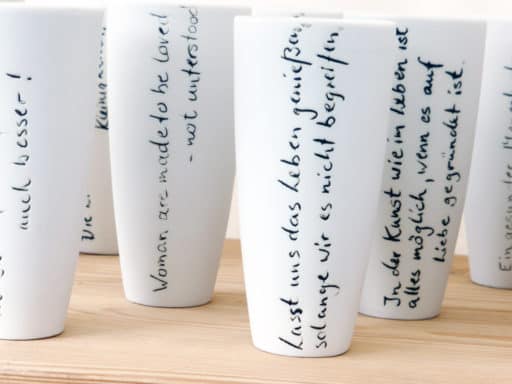 auch besser!
Die
Woman are made to be loved
- not unterstood
Lasst uns das Leben genießen,
solange wir es nicht begreifen.
In der Kunst wie im Leben ist
alles möglich, wenn es auf
Liebe gegründet ist.
Ein gesunder